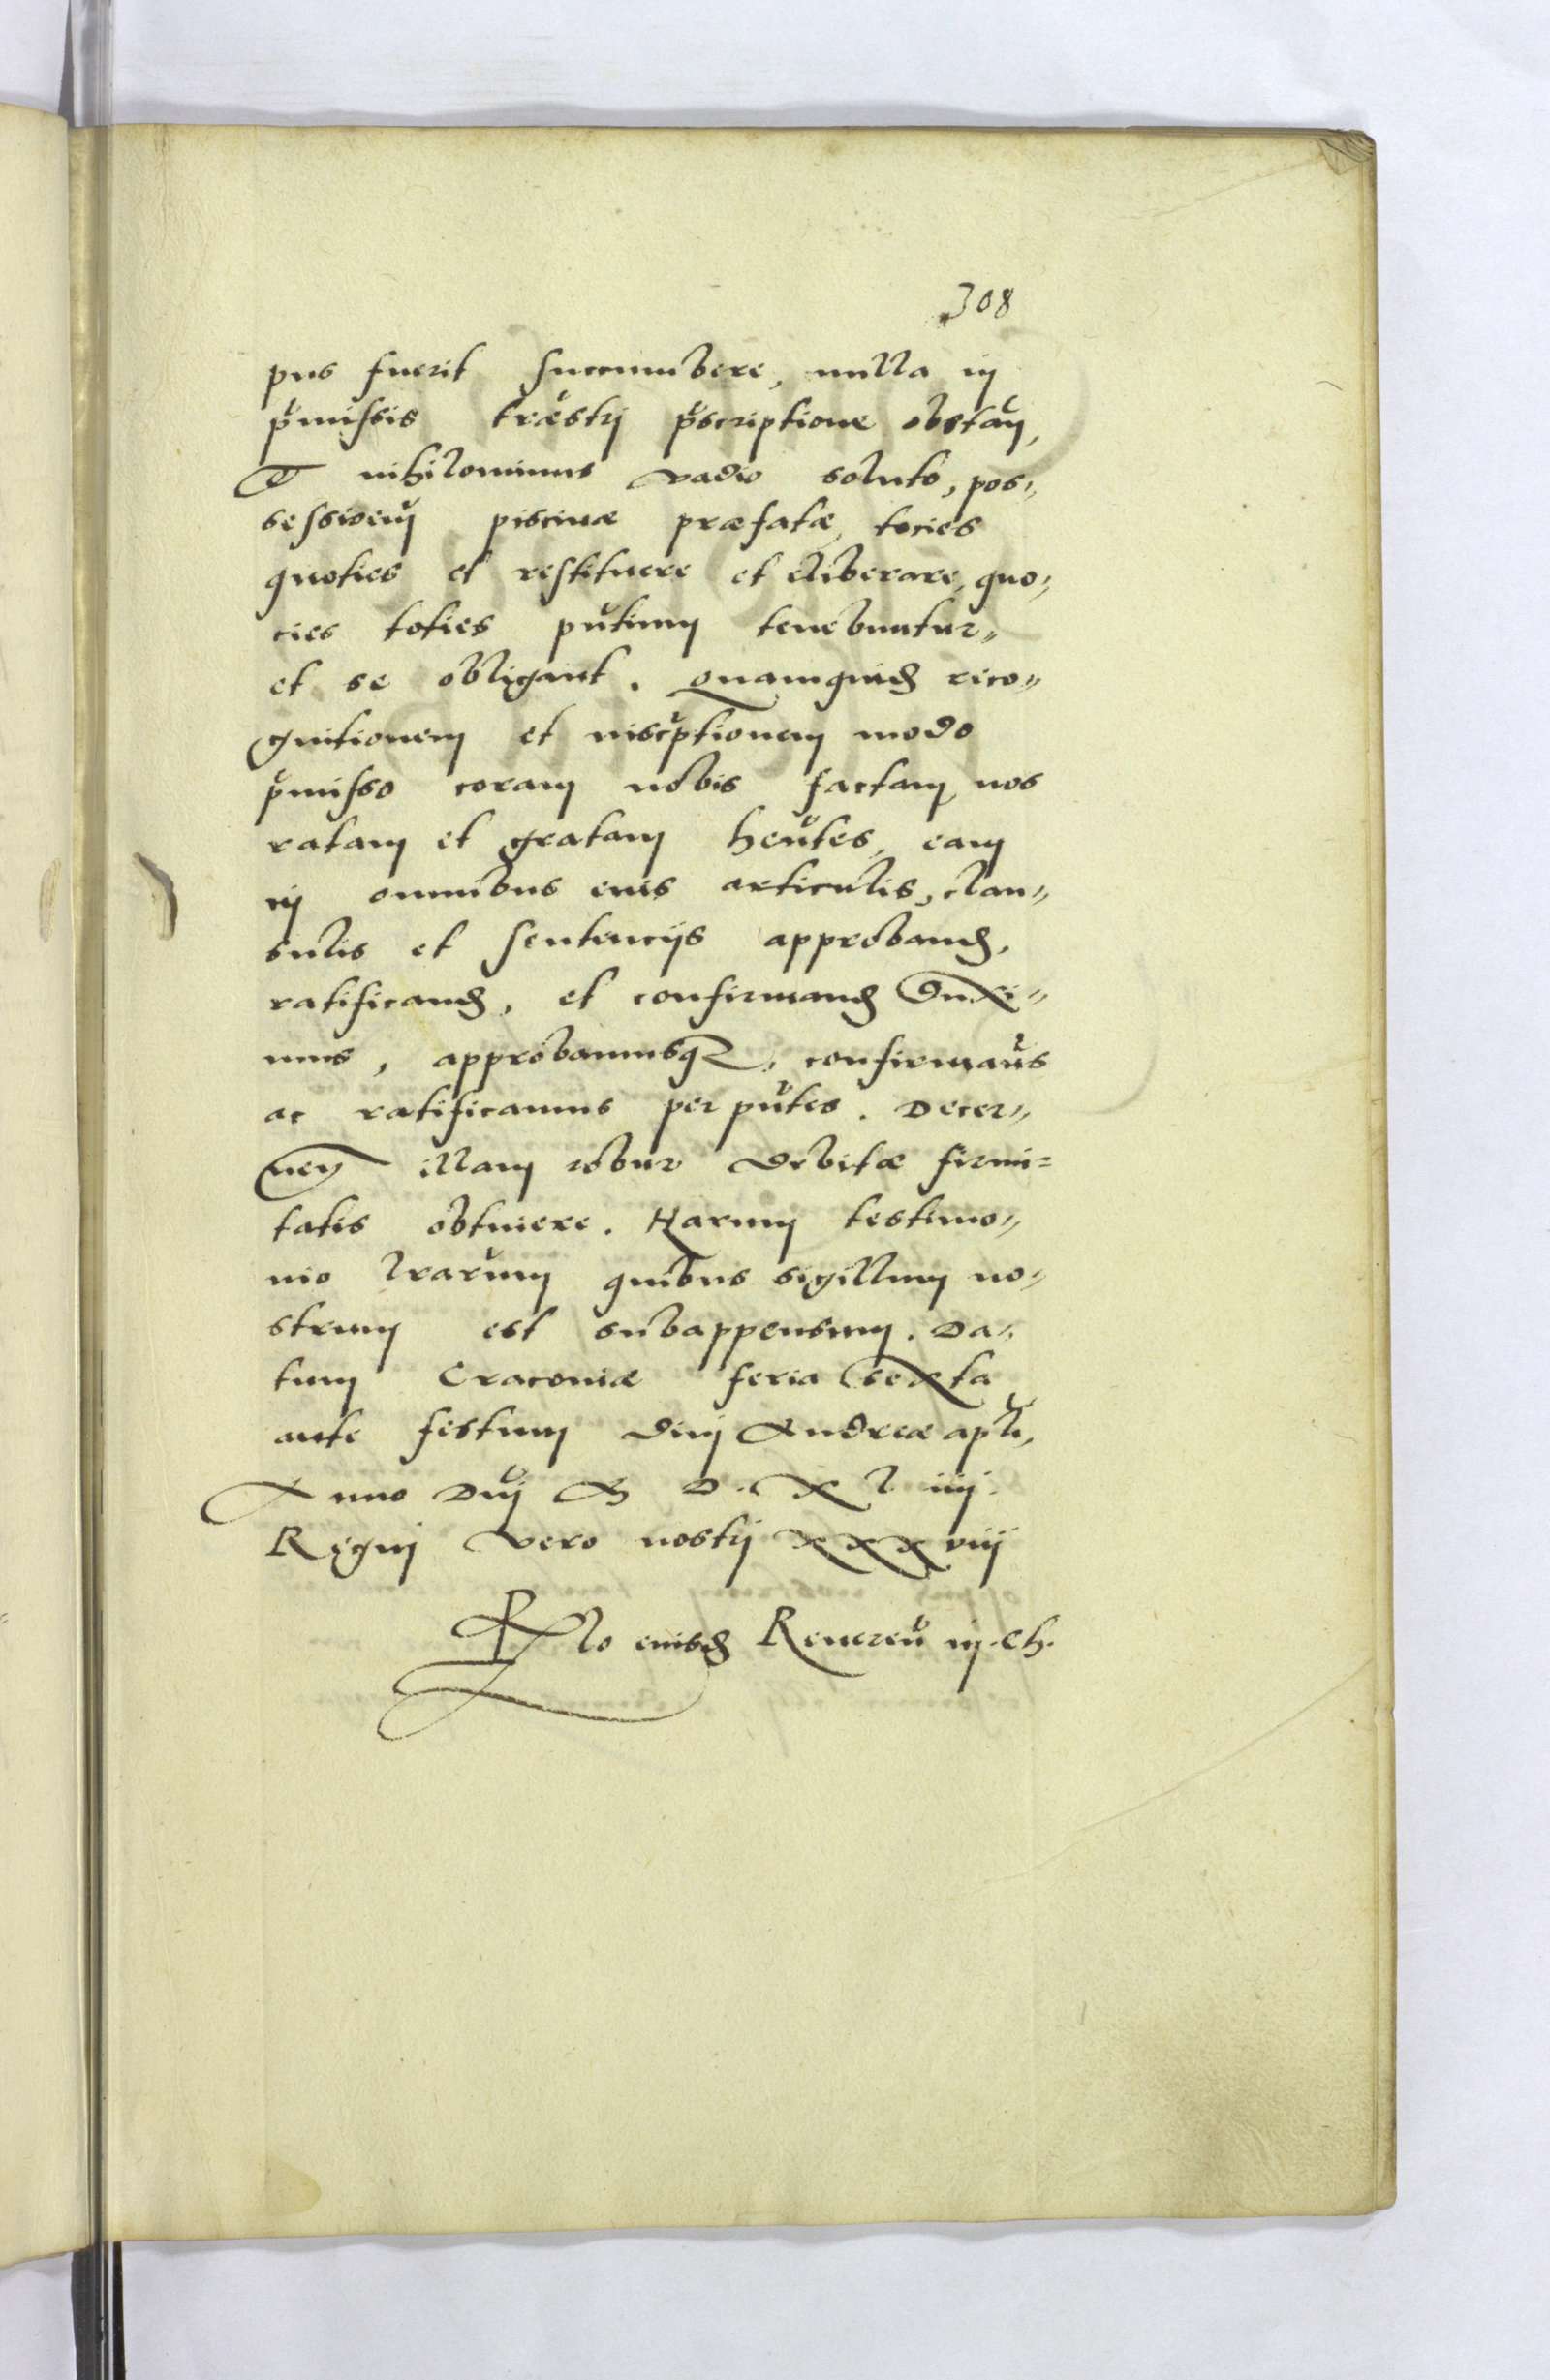 308
pus fuerit succumbere, nulla in
p̃missis trãstri p̃scriptione obstañ,
Et nihilominus vadio soluto, pos„
sessioem̃ piscinæ præfatæ, tocies
quoties et restituere et eliberare, quo„
cies toties pñtium tenebuntur„
et se obligant. Quamquid reco„
gnitionem et inscrp̃tionem modo
p̃misso coram nobis factam, nos
ratam et gratam heñtes, eam
in omnibus eius articulis, clau„
sulis et sentencijs approband,
ratificand, et confirmand duxi„
mus, approbamusq₃, confirmam̃s
ac ratificamus per pñtes. Decer„
neñ illam robur debitæ firmi=
tatis obtinere. Harum testimo„
nio lrarũm quibus sigillum no„
strum est subappensum. Da„
tum Cracoviæ feria sexta
ante festum Divi Andreæ apl̃i,
Anno Dñi M D. X l iiij.
Regni vero nostri xxxviij
Rlo eiusd Reveren̄ in. Ch.